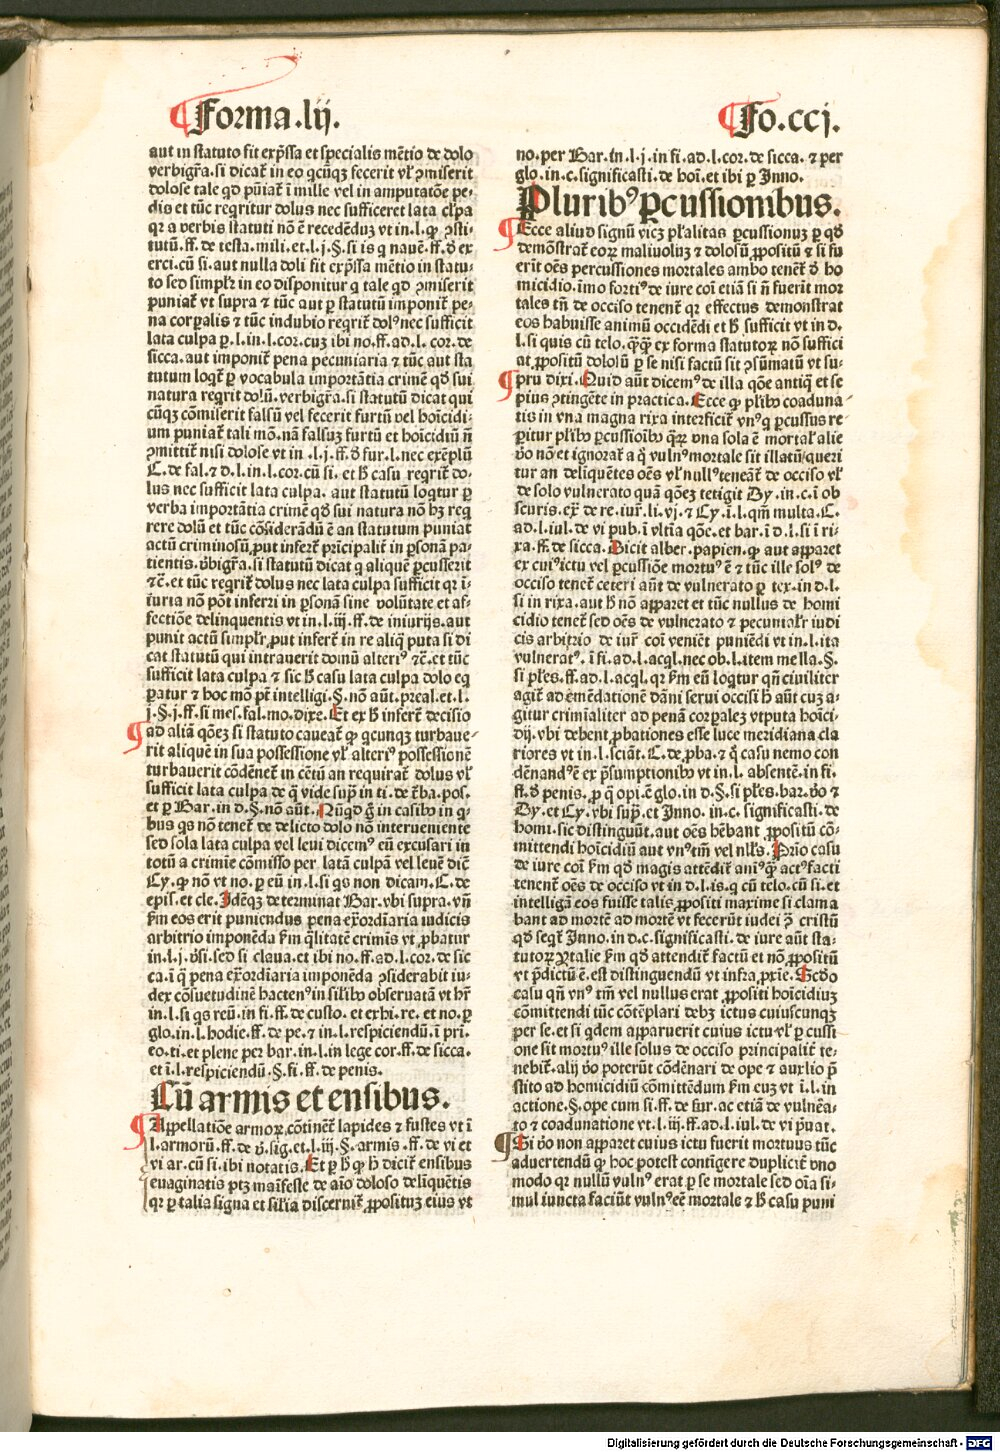 ¶Forma.lij.
¶Fo.ccj.
aut in statuto fit exp̄ssa et specialis mētio de dolo
verbigr̄a. si dicat̄ in eo qcūqꝫ fecerit vl̓ ꝯmiserit
dolose tale qd pūiat̄ ī mille vel in amputatōe pe-
dis et tūc reqritur dolus nec sufficeret lata cl̓pa
qr a verbis statuti nō ē recedēduꝫ vt in.l.ꝙ ꝯsti-
tutū.ff.de testa.mili.et.l.j.§.si is q nauē.ff.ð ex
erci.cū si.aut nulla doli fit exp̄ssa mētio in statu-
to sed simplr̄ in eo disponitur q tale qd ꝯmiserit
puniat̄ vt supra ⁊ tūc aut ꝑ statutū imponit̄ pe-
na corꝑalis ⁊ tūc indubio reqrit̄ dolꝰ nec sufficit
lata culpa ꝑ.l.in.l.cor.cuꝫ ibi no.ff.ad.l.cor.de
sicca.aut imponit̄ pena pecuniaria ⁊ tūc aut sta
tutum loqt̄ ꝑ vocabula importātia crimē qð sui
natura reqrit dolū.verbigr̄a.si statutū dicat qui
cūqꝫ cōmiserit falsū vel fecerit furtū vel hoīcidi-
um puniat̄ tali mō.nā falsuꝫ furtū et hoīcidiū n̄
ꝯmittit̄ nisi dolose vt in.l.j.ff.ð fur.l.nec exēplū
C.de fal.⁊ d.l.in.l.cor.cū si.et h̄ casu reqrit̄ do-
lus nec sufficit lata culpa.aut statutū loqtur ꝑ
verba importātia crimē qð sui natura nō hꝫ req
rere dolū et tūc cōsiderādū ē an statutum puniat
actū criminosū ꝓut infert̄ prīcipalit̄ in ꝑsonā pa-
tientis.v̄bigr̄a.si statutū dicat q aliquē ꝑcusserit
⁊c̄.et tūc reqrit̄ dolus nec lata culpa sufficit qr ī-
iuria nō pōt inferri in ꝑsonā sine volūtate et af-
fectiōe delinquentis vt in.l.iij.ff.de iniurijs.aut
punit actū simplr̄ ꝓut infert̄ in re aliq̄ puta si di
cat statutū qui intrauerit domū alteriꝰ ⁊c̄.et tūc
sufficit lata culpa ⁊ sic h̄ casu lata culpa dolo eq
ꝑatur ⁊ hoc mō pt̄ intelligi.§.nō aūt.preal.et.l.
j.§.j.ff.si mes.fal.mo.dixe.Et ex h̄ infert̄ decisio
¶ad aliā qōeꝫ si statuto caueat̄ ꝙ qcunqꝫ turbaue-
rit aliquē in sua possessione vl̓ alteriꝰ possessionē
turbauerit cōdēnet̄ in cētū an requirat̄ dolus vl̓
sufficit lata culpa de q̄ vide sup̄ in ti.de t̄ba.pos.
et ꝑ Bar.in d.§.nō aūt.Nūqd ḡ in casibꝰ in q-
bus qs nō tenet̄ de delicto dolo nō interueniente
sed sola lata culpa vel leui dicemꝰ eū excusari in
totū a crimīe cōmisso per latā culpā vel leuē dic̄
Cy.ꝙ nō vt no.ꝑ eū in.l.si qs non dicam.C.de
epis.et cle.Idēqꝫ determinat Bar.vbi supra.vn̄
ẜm eos erit puniendus pena ex̄ordīaria iudicis
arbitrio imponēda ẜm q̄litatē crimis vt ꝓbatur
in.l.j.v̄si.sed si claua.et ibi no.ff.ad.l.cor.de sic
ca.ī q̄ pena ex̄ordiaria imponēda ꝯsiderabit iu-
dex cōsuetudinē hactenꝰ in sil̓ibꝰ obseruatā vt hr̄
in.l.si qs reū.in fi.ff.de custo.et exhi.re.et no.ꝑ
glo.in.l.hodie.ff.de pe.⁊ in.l.respiciendū.ī pri.
eo.ti.et plene per bar.in.l.in lege cor.ff.de sicca.
et ī.l.respiciendū.§.fi.ff.de penis.
Cū armis et ensibus.
¶Appellatiōe armoꝝ cōtinēt̄ lapides ⁊ fustes vt ī
l.armorū.ff.de v̄.sig.et.l.iij.§.armis.ff.de vi et
vi ar.cū si.ibi notatis.Et ꝑ h̄ ꝙ h̄ dicit̄ ensibus
euaginatis ptꝫ maīfeste de aīo doloso deliquētis
qr ꝑ talia signa et sil̓ia discernit̄ ꝓpositūꝫ eius vt
no.per Bar.in.l.j.in fi.ad.l.cor.de sicca.⁊ per
glo.in.c.significasti.de hoī.et ibi ꝑ Inno.
Pluribꝰ ꝑcussionibus.
¶Ecce aliud signū vicꝫ pl̓alitas ꝑcussionuꝫ ꝑ qð
demōstrat̄ eoꝝ maliuoluꝫ ⁊ dolosū ꝓpositū ⁊ si fu
erīt oēs percussiones mortales ambo tenēt̄ ð ho
micidio.īmo fortiꝰ de iure coī etiā si n̄ fuerit mor
tales tn̄ de occiso tenent̄ qr effectus demonstrat
eos habuisse animū occidēdi et h̄ sufficit vt in d.
l.si quis cū telo.q̄q̄ ex forma statutoꝝ nō suffici
at ꝓpositū dolosū ꝑ se nisi factū sit ꝯsūmatū vt su-
¶pru dixi.Quid aūt dicemꝰ de illa qōe antiq̄ et se
pius ꝯtingēte in practica.Ecce ꝙ pl̓ibꝰ coaduna-
tis in vna magna rixa interficit̄ vnꝰ q ꝑcussus re
ꝑitur pl̓ibꝰ ꝑcussioībꝰ q̄ꝝ vna sola ē mortal̓ alie
v̄o nō et ignorat̄ a q̄ vulnꝰ mortale sit illatū/queri
tur an deliquētes oēs vl̓ nullꝰ teneat̄ de occiso vl̓
de solo vulnerato quā qōeꝫ tetigit Dy.in.c.ī ob
scuris.ex̄ de re.iur̄.li.vj.⁊ Cy ī.l.qm̄ multa.C.
ad.l.iul.de vi pub.ī vltīa qōe.et bar.ī d.l.si ī ri-
xa.ff.de sicca.Dicit alber.papien.ꝙ aut apparet
ex cuiꝰ ictu vel ꝑcussiōe mortuꝰ ē ⁊ tūc ille solꝰ de
occiso tenet̄ ceteri aūt de vulnerato ꝑ tex.in d.l.
si in rixa.aut h̄ nō apparet et tūc nullus de homi
cidio tenet̄ sed oēs de vulnerato ⁊ pecuniat̄ iudi
cis arbitrio de iur̄ coī veniēt puniēdi vt in.l.ita
vulneratꝰ.ī fi.ad.l.acql.nec ob.l.item mella.§.
si pl̓es.ff.ad.l.acql.qr ẜm eū loqtur qn̄ ciuiliter
agit̄ ad emēdationē dāni serui occisi h̄ aūt cuꝫ a-
gitur crimīaliter ad penā corꝑaleꝫ vtputa hoīci-
dij.vbi debent ꝓbationes esse luce meridiana cla
riores vt in.l.sciāt.C.de ꝓba.⁊ q̄ casu nemo con
dēnandꝰ ē ex p̄sumptionibꝰ vt in.l.absentē.in fi.
ff.ð penis.ꝑ q̄ opi.ē glo.in d.§.si pl̓es.bar.v̄o ⁊
Dy.et Cy.vbi sup̄.et Inno.in.c.significasti.de
homi.sic distinguūt.aut oēs hēbant ꝓpositū cō-
mittendi hoīcidiū aut vnꝰ tm̄ vel nl̓l̓s.Prīo casu
de iure coī ẜm qð magis attēdit̄ aniꝰ q̄ actꝰ facti
tenent̄ oēs de occiso vt in d.l.is.q cū telo.cū si.et
intelligā eos fuisse talis ꝓpositi maxime si clama
bant ad mortē ad mortē vt fecerūt iudei ꝯ̄ cristū
qð seqt̄ Inno.in d.c.significasti.de iure aūt sta-
tutoꝝ ytalie ẜm qð attendit̄ factū et nō ꝓpositū
vt p̄dictū ē.est distinguendū vt infra ꝓxīe.Scdo
casu qn̄ vnꝰ tm̄ vel nullus erat ꝓpositi hoīcidiuꝫ
cōmittendi tūc cōtēplari debꝫ ictus cuiuscunqꝫ
per se.et si qdem apparuerit cuius ictu vl̓ ꝑ cussi
one sit mortuꝰ ille solus de occiso principalit̄ te-
nebit̄.alij v̄o poterūt cōdēnari de ope ⁊ auxlio p̄
stito ad homicidiū cōmittēdum ẜm cuꝫ vt ī.l.in
actione.§.ope cum si.ff.de fur.ac etiā de vulnēa-
to ⁊ coadunatione vt.l.iij.ff.ad.l.iul.de vi p̄uat.
¶Si v̄o non apparet cuius ictu fuerit mortuus tūc
aduertendū ꝙ hoc potest contīgere duplicit̄ vno
modo qr nullū vulnꝰ erat ꝑ se mortale sed oīa si-
mul iuncta faciūt vulnꝰ eē mortale ⁊ h̄ casu puni
Digitalisierung gefördert durch die Deutsche Forschungsgemeinschaft - DFG